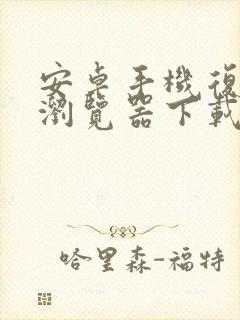 安卓手機復
瀏覽器下載
哈里森-福特